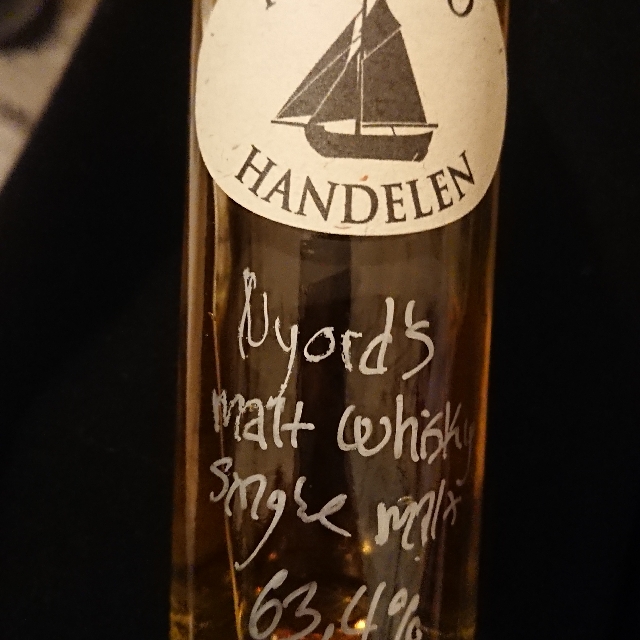 HANDELEN
Nyord's
malt whisky
smoke malt
63,4%